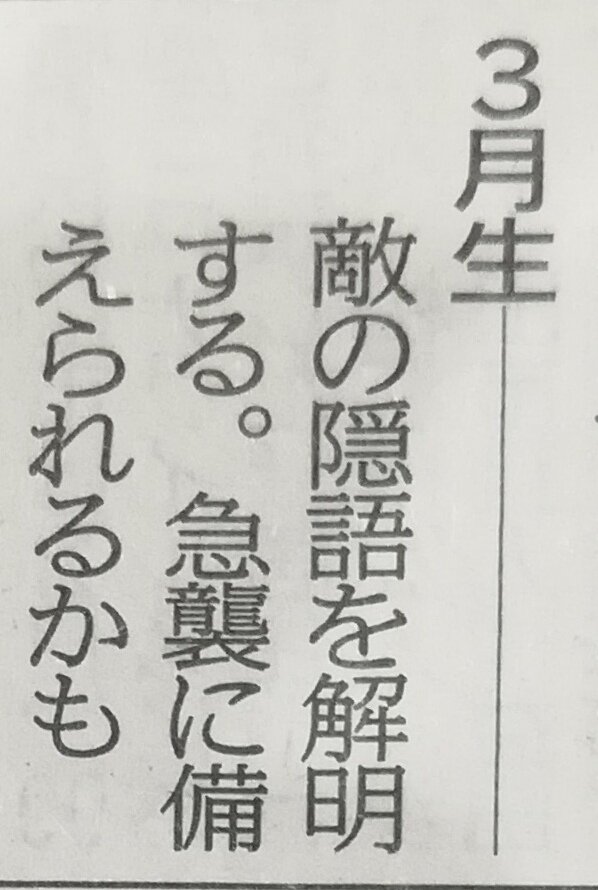 3月生
敵の隠語を解明
する。急襲に備
えられるかも